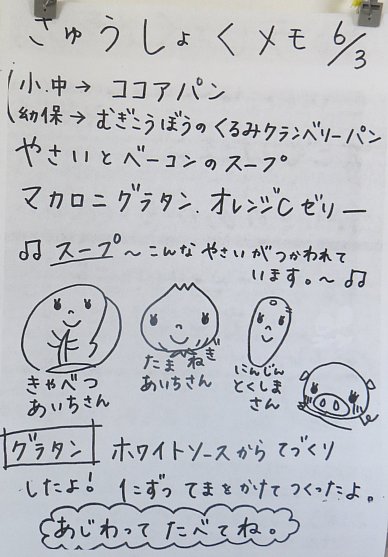 きゅうしょくメモ 6/3
小.中→ ココアパン
幼保→ むぎこうぼうのくるみクランベリーパン
やさいとベーコンのスープ
マカロニグラタン.オレンジCゼリー
♫ スープ〜こんなやさいがつかわれて
います。〜♫
きゃべつ
あいちさん
たまねぎ
あいちさん
にんじん
とくしま
さん
グラタン ホワイトソースからてづくり
したよ! 仁ずつてまをかけてつくったよ。
あじわってたべてね。